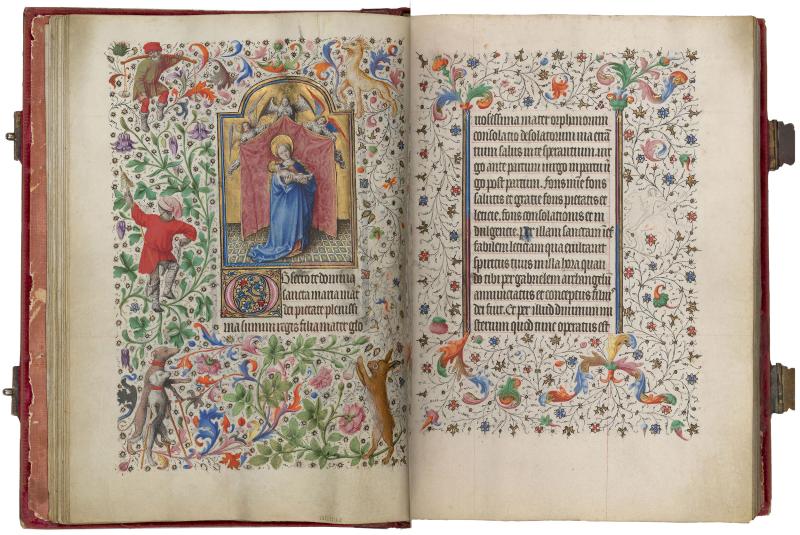 Obsecro te domina
sancta maria mat
dei pietate plenissi
ma summi regis filia mater glo
riosissima mater orphanorum
consolatio desolatorum via erran
tium salus in te sperantium vir
go ante partum virgo in partu vir
go post partum. Fons mie fons
salutis et gratie fons pietatis et
leticie. fons consolationis et in
dulgencie. Per illam sanctam inef
fabilem leticiam qua exultavit
spiritus tuus in illa hora quan
do tibi per gabrielem archangelum
annunciatus et conceptus filius
dei fuit. Et per illud divinum mi
sterium quod tunc operatus est